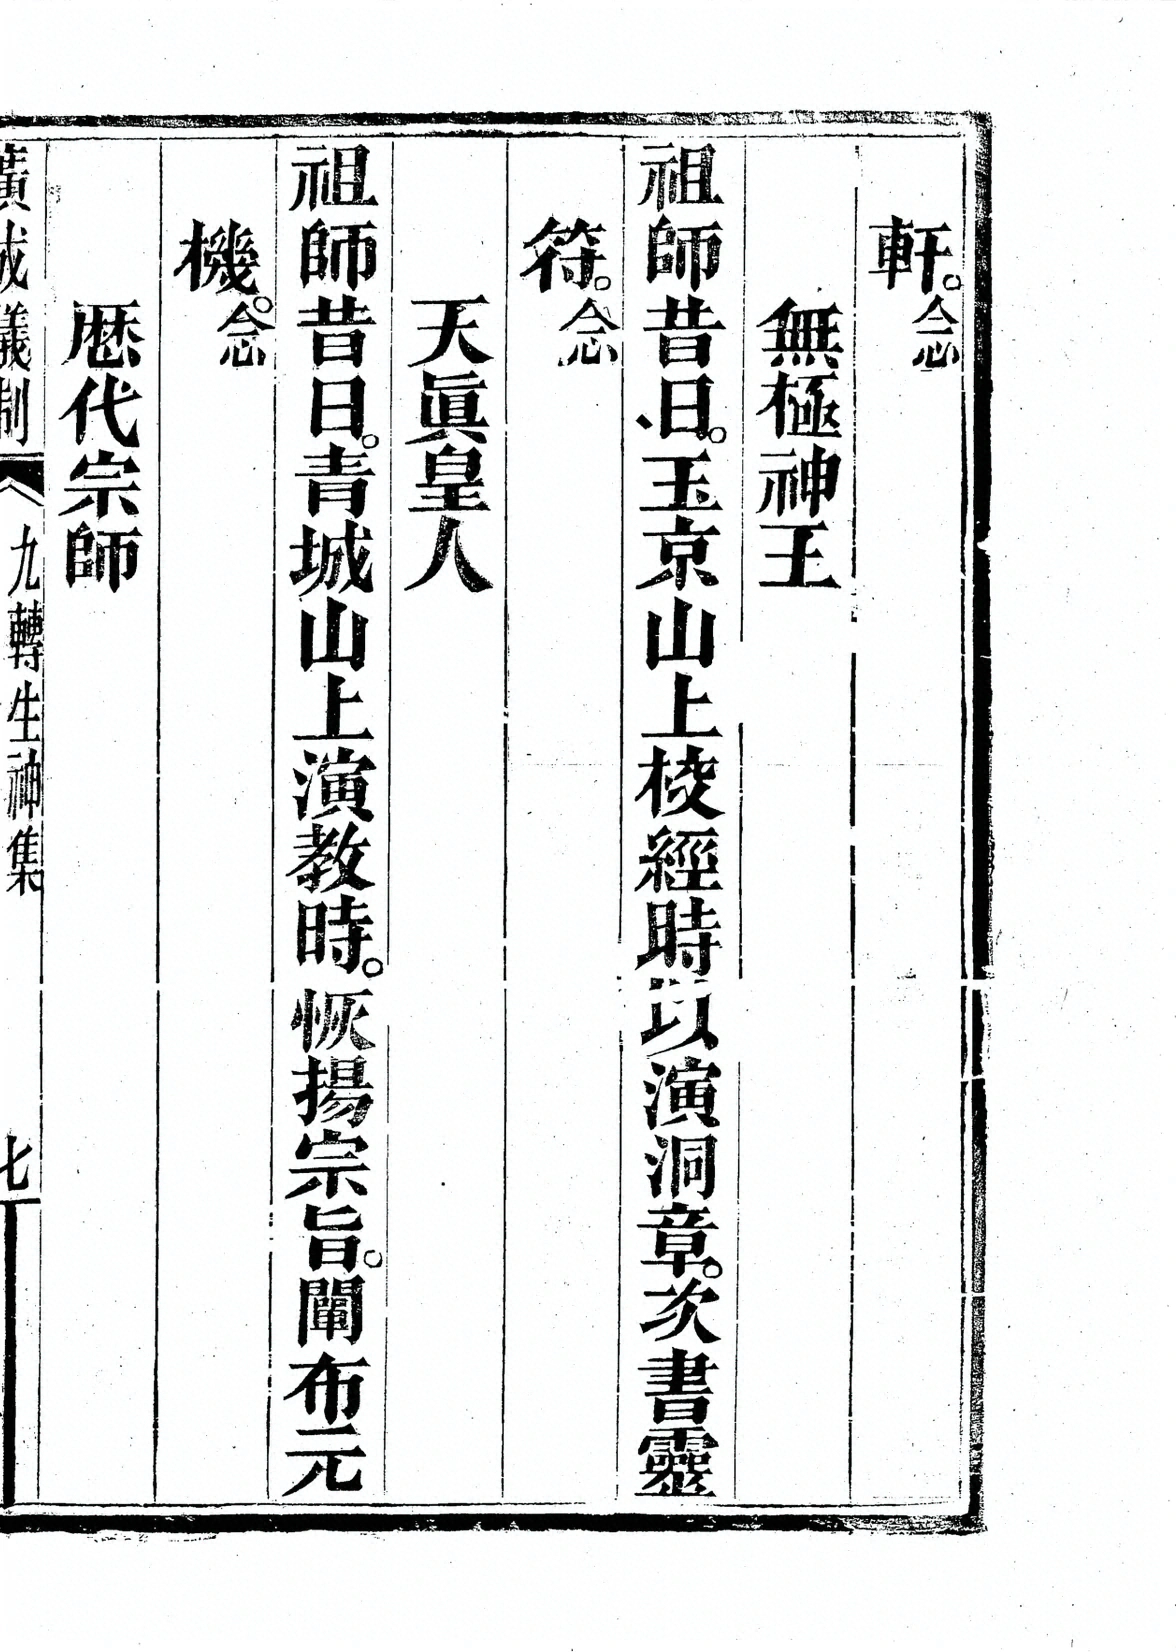 軒。念
無極神王
祖師昔日。玉京山上校經時以演洞章。次書靈
符。念
天眞皇人
祖師昔日。青城山上演教時。恢揚宗旨。闡布元
機。念
歷代宗師
廣成儀制 九轉生神集 七